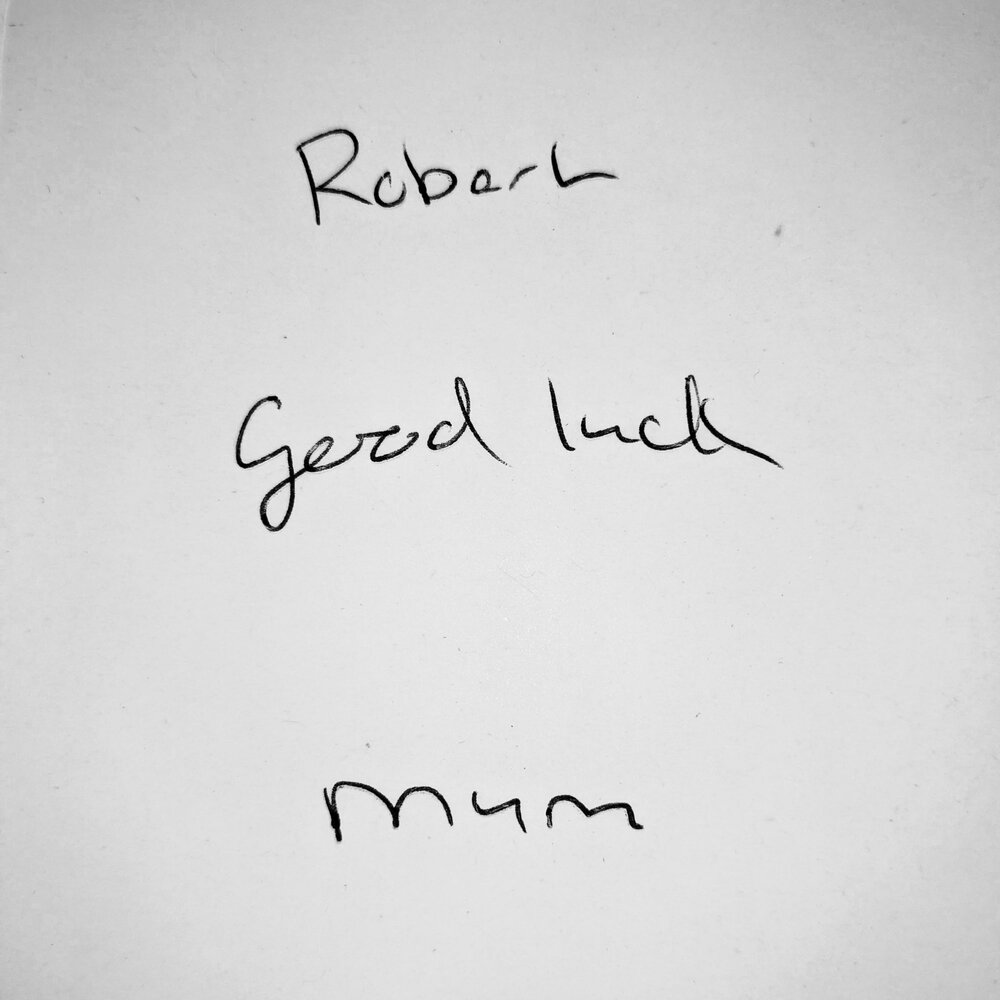 Robert
Good luck
Mum